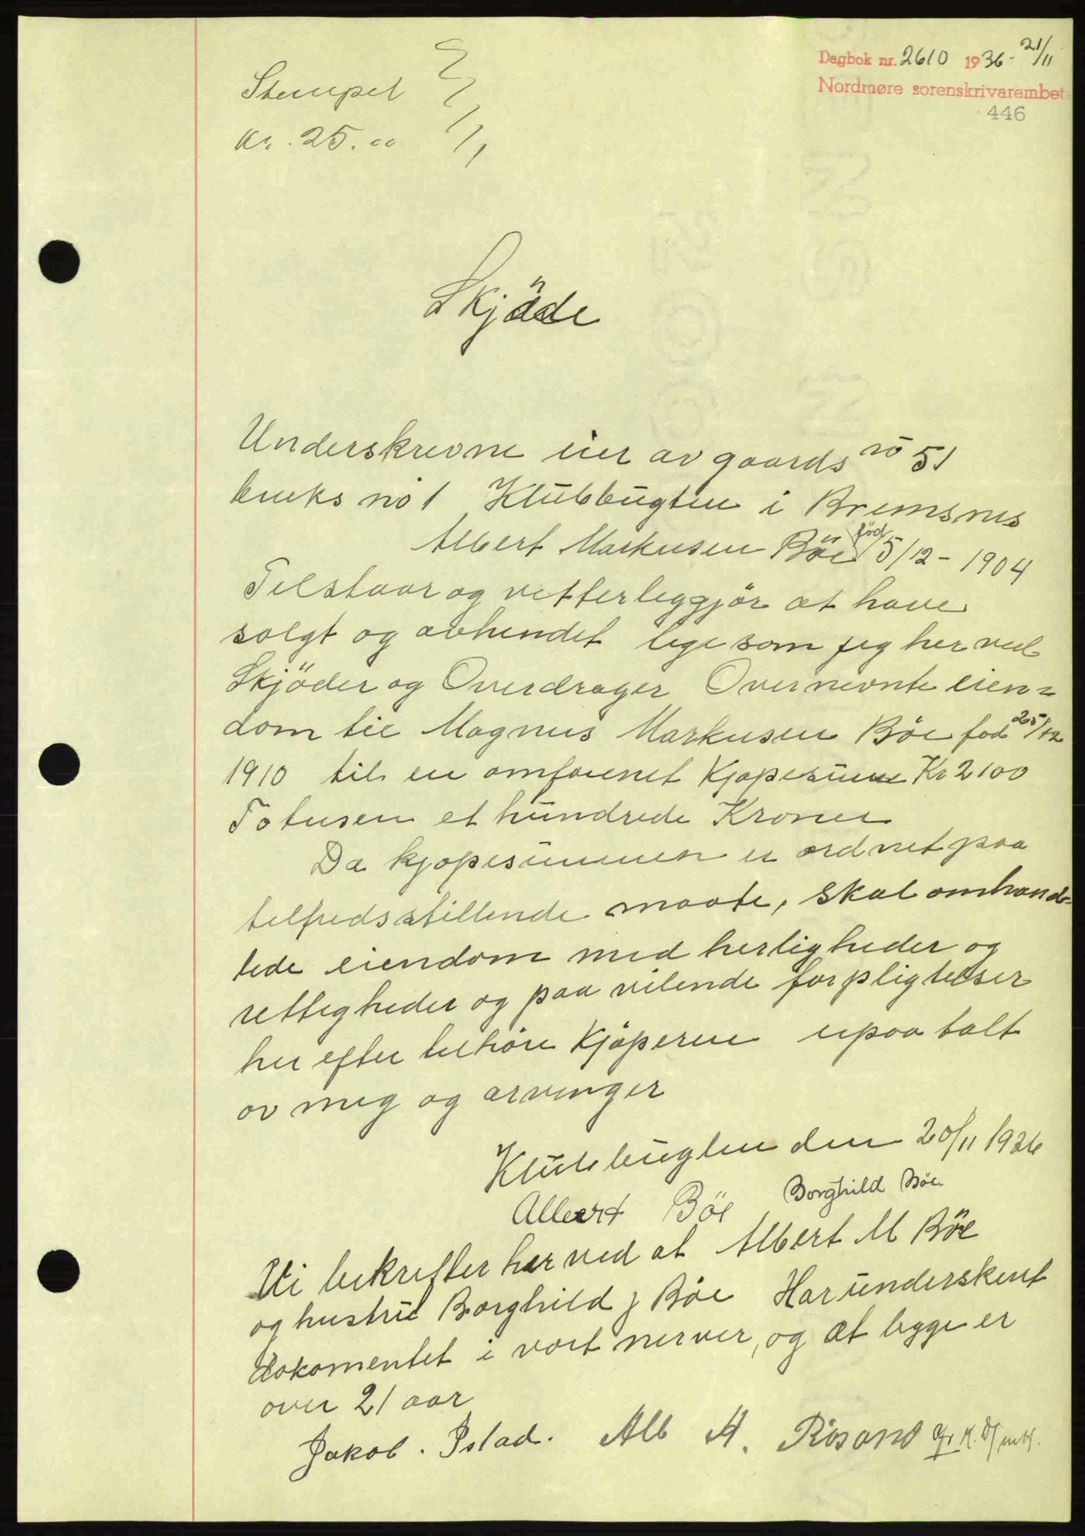 Dagbok nr. 2610 1936 - 21/11
Nordmøre sorenskrivarembet
446
Stempel
Kr. 25.00
Skjöde
Underskrevne eier av gaards no 51
bruks no 1 Klubbugten i Bremsnes
Albert Markusen Böe föd 5/12 - 1904
Tilstaar og vetterleggjör at have
solgt og avhendet lige som jeg her ved
Skjöder og Overdrager Overnevnte eien=
dom til Magnus Markusen Böe föd 25/12
1910 til en omforenet Kjöpesum Kr 2100
Totusen et hundrede Kroner
Da kjöpesummen er ordnet paa
tilfredsstillende maate, skal omhand-
lede eiendom med herligheder og
rettigheder og paa vilende forpligtelser
her efter tilhöre Kjöperen upaa talt
av meg og arvinger
Klubbugten den 20/11 1936
Albert Böe Borghild Böe
Vi bekrefter her ved at Albert M Böe
og hustru Borghild J Böe Har underskrevt
dokomentet i vort nerver, og at bygge er
over 21 aar
Jakob. Istad. Alb M. Rosand